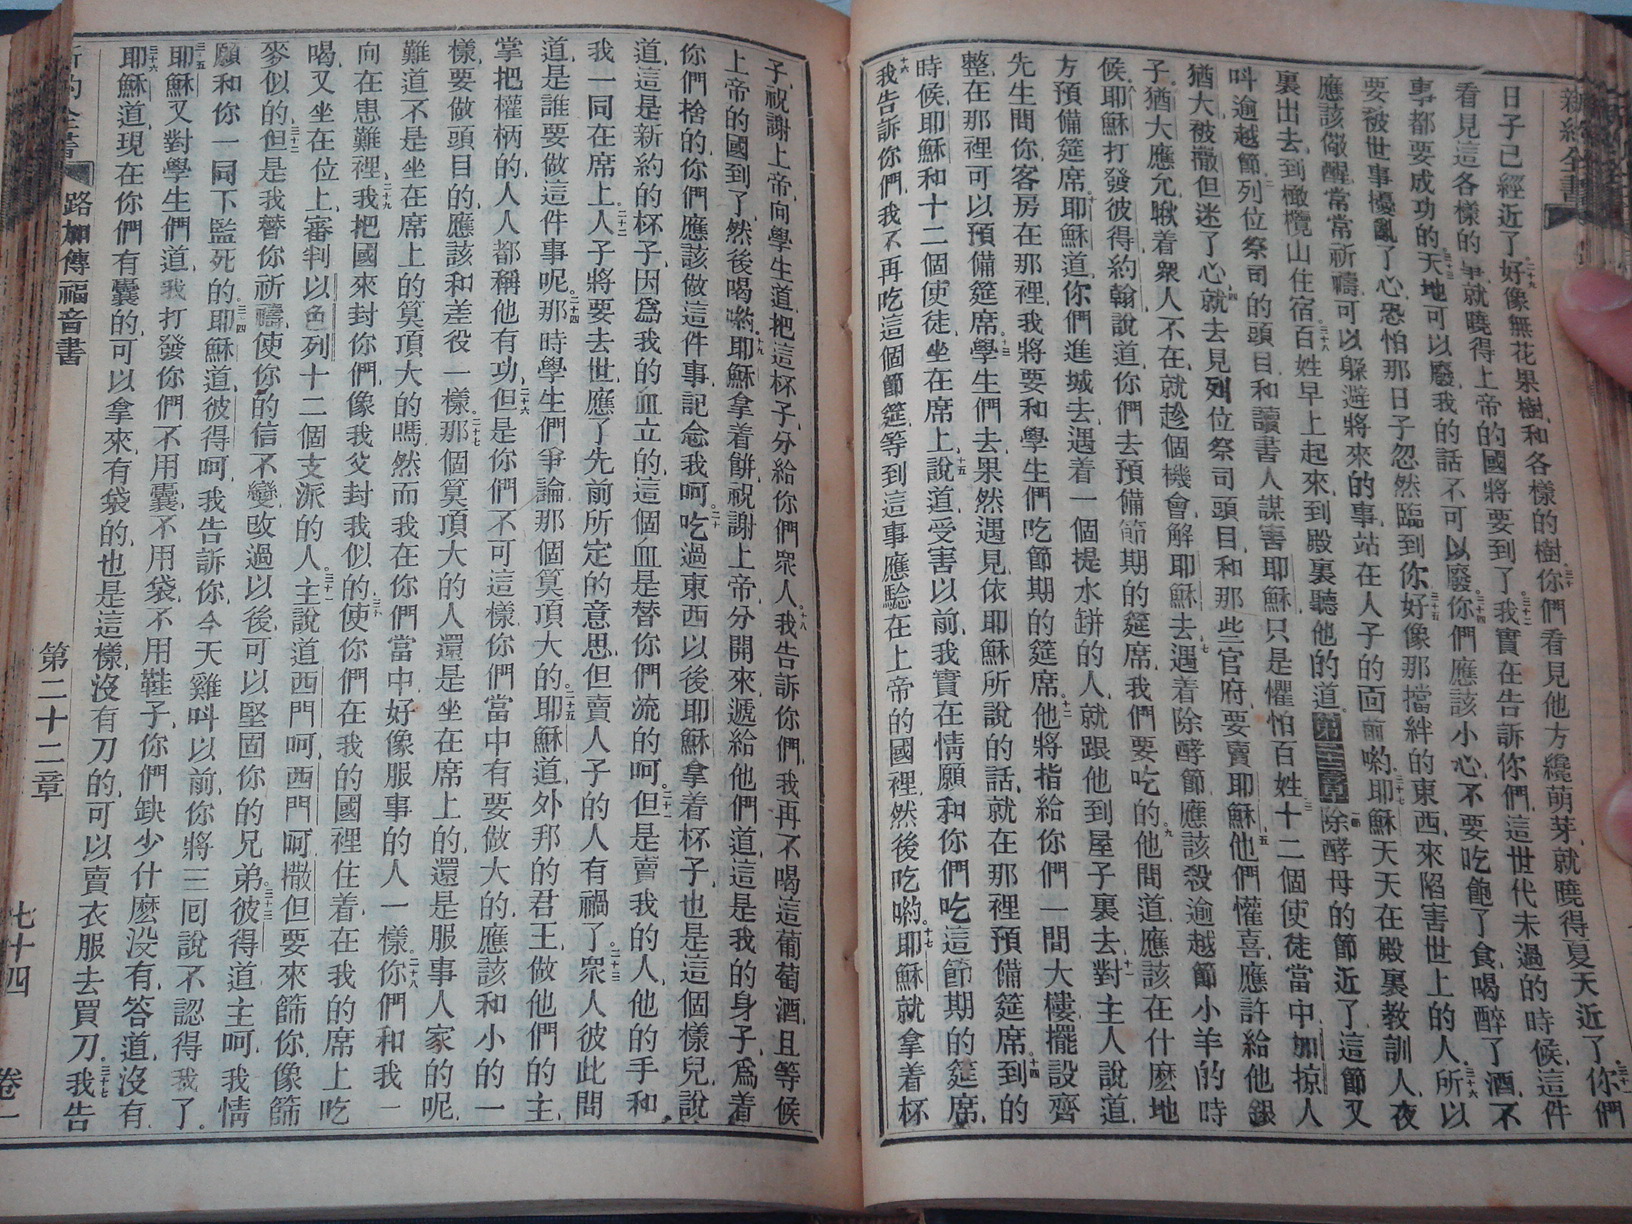 新約全書
日子已經近了好像無花果樹和各樣的樹你們看見他方纔萌芽就曉得夏天近了你們
看見這各樣的事就曉得上帝的國將要到了我實在告訴你們這世代未過的時候這件
事都要成功的天地可以廢我的話不可以廢你們應該小心不要吃飽了食喝醉了酒不
要被世事擾亂了心恐怕那日子忽然臨到你好像那擋絆的東西來陷害世上的人所以
應該儆醒常常祈禱可以躲避將來的事站在人子的面前喲耶穌天天在殿裏教訓人夜
裏出去到橄欖山住宿百姓早上起來到殿裏聽他的道第二十二章除酵母的節近了這節又
呌逾越節列位祭司的頭目和讀書人謀害耶穌只是懼怕百姓十二個使徒當中加掠人
猶大被撒但迷了心就去見列位祭司頭目和那些官府要賣耶穌他們懽喜應許給他銀
子猶大應允瞅着衆人不在就趁個機會解耶穌去遇着除酵節應該殺逾越節小羊的時
候耶穌打發彼得約翰說道你們去預備節期的筵席我們要吃的他問道應該在什麽地
方預備筵席耶穌道你們進城去遇着一個提水缾的人就跟他到屋子裏去對主人說道
先生問你客房在那裡我將要和學生們吃節期的筵席他將指給你們一間大樓擺設齊
整在那裡可以預備筵席學生們去果然遇見依耶穌所說的話就在那裡預備筵席到的
時候耶穌和十二個使徒坐在席上說道受害以前我實在情願和你們吃這節期的筵席
我告訴你們我不再吃這個節筵等到這事應騐在上帝的國裡然後吃喲耶穌就拿着杯
子祝謝上帝向學生道把這杯子分給你們眾人我告訴你們我再不喝這葡萄酒且等候
上帝的國到了然後喝喲耶穌拿着餅祝謝上帝分開來遞給他們道這是我的身子爲着
你們捨的你們應該做這件事記念我呵吃過東西以後耶穌拿着杯子也是這個樣兒說
道這是新約的杯子因爲我的血立的這個血是替你們流的呵但是賣我的人他的手和
我一同在席上人子將要去世應了先前所定的意思但賣人子的人有禍了眾人彼此問
道是誰要做這件事呢那時學生們爭論那個莫頂大的耶穌道外邦的君王做他們的主
掌把權柄的人人都稱他有功但是你們不可這樣你們當中有要做大的應該和小的一
樣要做頭目的應該和差役一樣那個莫頂大的人還是坐在席上的還是服事人家的呢
難道不是坐在席上的莫頂大的嗎然而我在你們當中好像服事的人一樣你們和我一
向在患難裡我把國來封你們像我父封我似的使你們在我的國裡住着在我的席上吃
喝又坐在位上審判以色列十二個支派的人主說道西門呵西門呵撒但要來篩你像篩
麥似的但是我替你祈禱使你的信不變改過以後可以堅固你的兄弟彼得道主呵我情
願和你一同下監死的耶穌道彼得呵我告訴你今天雞呌以前你將三囘說不認得我了
耶穌又對學生們道我打發你們不用囊不用袋不用鞋子你們缺少什麽没有答道沒有
耶穌道現在你們有囊的可以拿來有袋的也是這樣沒有刀的可以賣衣服去買刀我告
新約全書 路加傳福音書 第二十二章 七十四 卷一